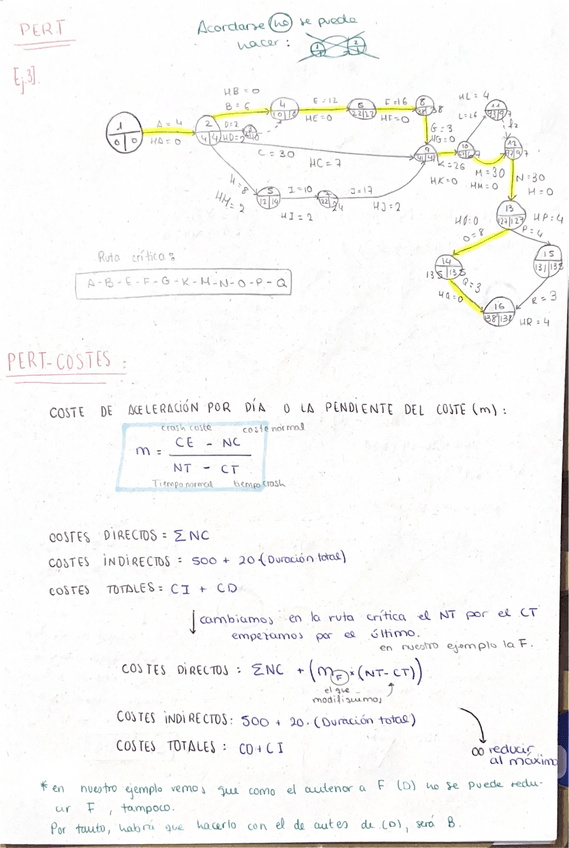 PERT
Acordarse no se puede
hacer:
Ej.3].
1
0 0
A = 4
HA = 0
2
4 4
HB = 0
B = 6
D = 2
HD = 2
4
10 10
E = 12
HE = 0
6
22 22
F = 16
HF = 0
8
38
G = 3
HG = 0
C = 30
HC = 7
9
H = 8
HH = 2
5
12 14
I = 10
HI = 2
7
22 24
J = 17
HJ = 2
K = 26
HK = 0
10
HL = 4
11
12
M = 30
HM = 0
N = 30
H = 0
13
127 127
HO = 0
O = 8
HP = 4
P = 4
14
135 135
15
131 135
Q = 3
HQ = 0
R = 3
HR = 4
16
138 138
Ruta crítica:
A-B-E-F-G-K-M-N-O-P-Q
PERT-COSTES:
COSTE DE ACELERACIÓN POR DÍA O LA PENDIENTE DEL COSTE (m):
crash coste coste normal
m = CE - NC
NT - CT
Tiempo normal tiempo crash
COSTES DIRECTOS = ΣNC
COSTES INDIRECTOS = 500 + 20·(Duración total)
COSTES TOTALES = CI + CD
cambiamos en la ruta crítica el NT por el CT
empezamos por el último.
en nuestro ejemplo la F.
COSTES DIRECTOS: ΣNC + (mF * (NT - CT))
el que
modifiquemos
COSTES INDIRECTOS: 500 + 20·(Duración total)
COSTES TOTALES: CD + CI
∞ reducir
al máximo
* en nuestro ejemplo vemos que como el anterior a F (D) no se puede redu-
cir F, tampoco.
Por tanto, habrá que hacerlo con el de antes de (D), será B.